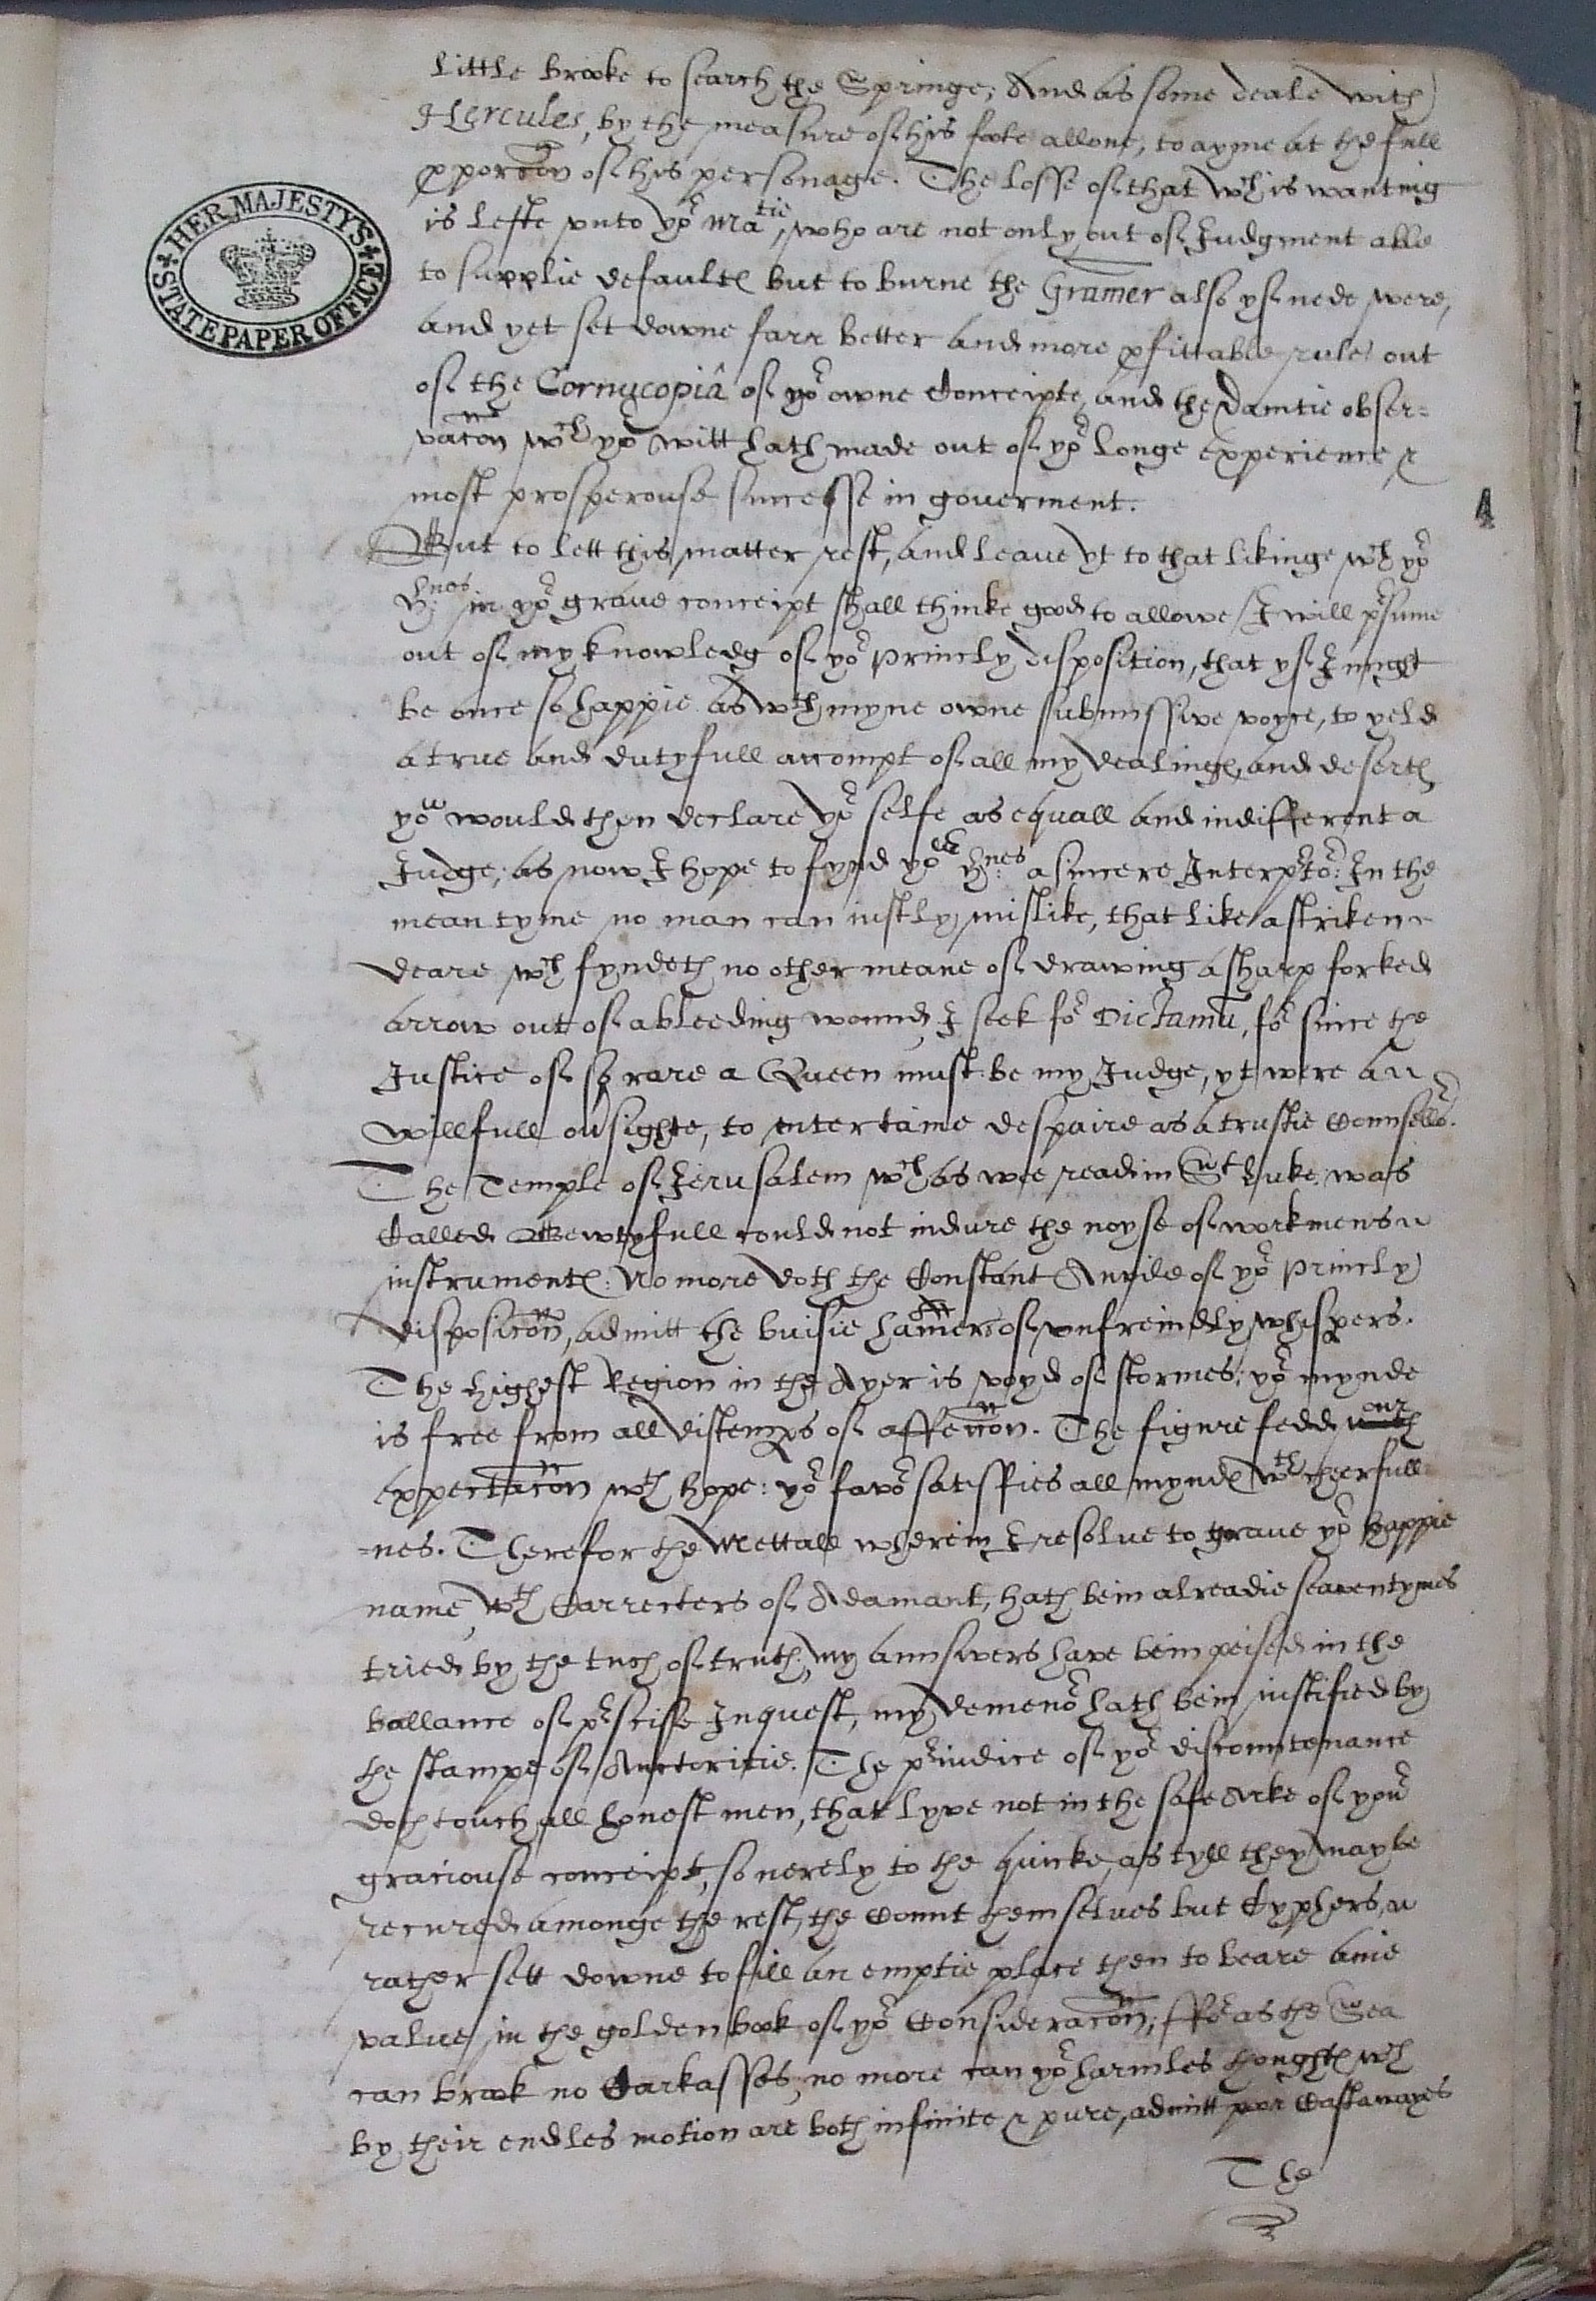 little brooke to search the Springe, And as some deale with
Hercules, by the measure of his foote allone, to ayme at the full
HER MAJESTY'S STATE PAPER OFFICE
pporcōn of his personage. The losse of that wch is wanting
is lefte vnto yor Matie, who are not only out of Iudgment able
to supplie defaultes but to burne the Gramer also yf nede were,
and yet set downe farr better and more pfittable rules out
of the Cornucopiâ of yor owne Conceipte, and the daintie obser=
vacōn wch yor witt hath made out of yor longe experience &
most prosperouse successe in gouerment.
But to lett this matter rest, and leaue yt to that likinge wch yor
H:nes in yor graue conceipt shall thinke good to allowe / I will psume
out of my knowledg of yor princly disposition, that yf I might
be once so happie as wth myne owne submissive voyce, to yeld
a true and dutyfull accompt of all my dealinges, and desertes
you would then declare yor selfe as equall and indifferent a
Iudge, as now I hope to fynd yor H:nes a sincere Interptor: In the
mean tyme no man can iustly mislike, that like a striken
deare wch fyndeth no other meane of drawing a sharp forked
arrow out of a bleeding wound, I seek for Dictamū, for since the
Iustice of so rare a Queen must be my Iudge, yt were a
willfull ouersighte, to entertaine despaire as a trustie Counsellor.
The Temple of Ierusalem wch as wee read in St Luke was
Called Bewtyfull could not indure the noyse of workmens
instrumentes: No more doth the Constant Anvile of yor princly
disposicōn, admitt the buisie hamers of vnfreindly whispers.
The highest Region in the Ayer is voyd of stormes; yor mynde
is free from all distemps of affeccōn. The figure fedd our
expectacōn wth hope: yor favor satisffies all myndes wth cheerfull
=nes. Therefor the Mettall wherein I resolue to graue yor happie
name, wth Carrecters of Adamant, hath bein alreadie seaventymes
tried by the tuch of truth, my aunswers have bein peised in the
ballance of pscisse Inquest, my demenor hath bein iustified by
the stampe of Auctoritie. The piudice of yor discountenance
doth touch all honest men, that lyve not in the safe Arke of your
graciouse conceipt, so nerely to the quicke, as tyll they may be
recured amonge the rest, the Count them selues but Cyphers,
rather sett downe to fill an emptie place then to beare anie
value in the golden book of yor Consideracōn; ffor as the Sea
can brook no Carkasses, no more can yor harmles thoughtes wch
by their endles motion are both infinite & pure, admitt poor Castawayes
The